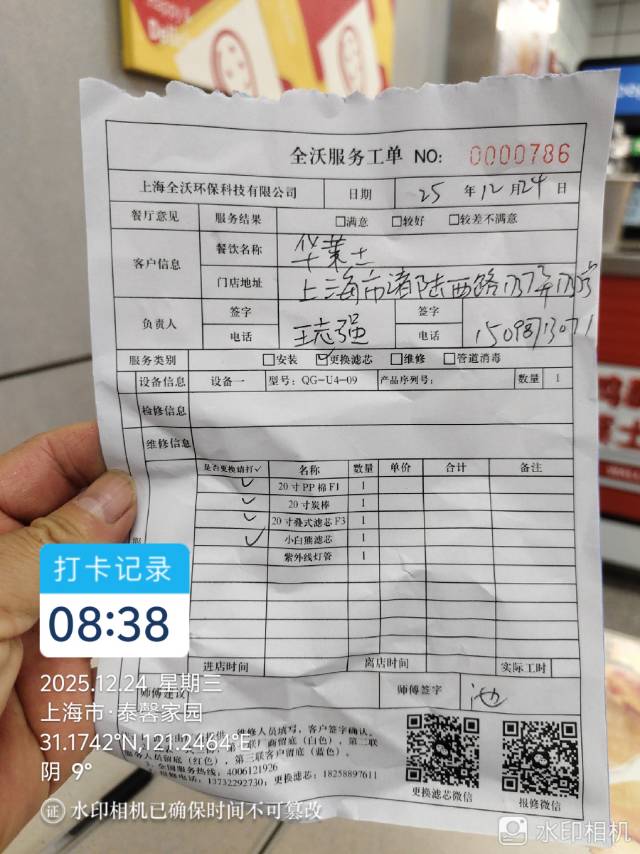 全沃服务工单 NO: 0000786
上海全沃环保科技有限公司 日期 25 年 12 月 24 日
餐厅意见 服务结果 □满意 □较好 □较差不满意
客户信息 餐饮名称 华莱士
门店地址 上海市诸陆西路
负责人 签字 王志强 签字
电话 电话
服务类别 □安装 ☑更换滤芯 □维修 □管道消毒
设备信息 设备一 型号: QG-U4-09 产品序列号: 数量 1
检修信息
维修信息
是否更换请打✓ 名称 数量 单价 合计 备注
✓ 20寸PP棉F1 1
✓ 20寸炭棒 1
✓ 20寸叠式滤芯F3 1
✓ 小白熊滤芯 1
紫外线灯管 1
进店时间 离店时间 实际工时
师傅建议 师傅签字 池
维修人员填写，客户签字确认。
商留底（白色），第二联
服务人员留底（红色），第三联客户留底（蓝色）。
全国服务热线: 4006121926
电话: 13732292730; 更换滤芯: 18258897611
更换滤芯微信 报修微信
打卡记录
08:38
2025.12.24 星期三
上海市·泰馨家园
31.1742°N,121.2464°E
阴 9°
证 水印相机已确保时间不可篡改
水印相机